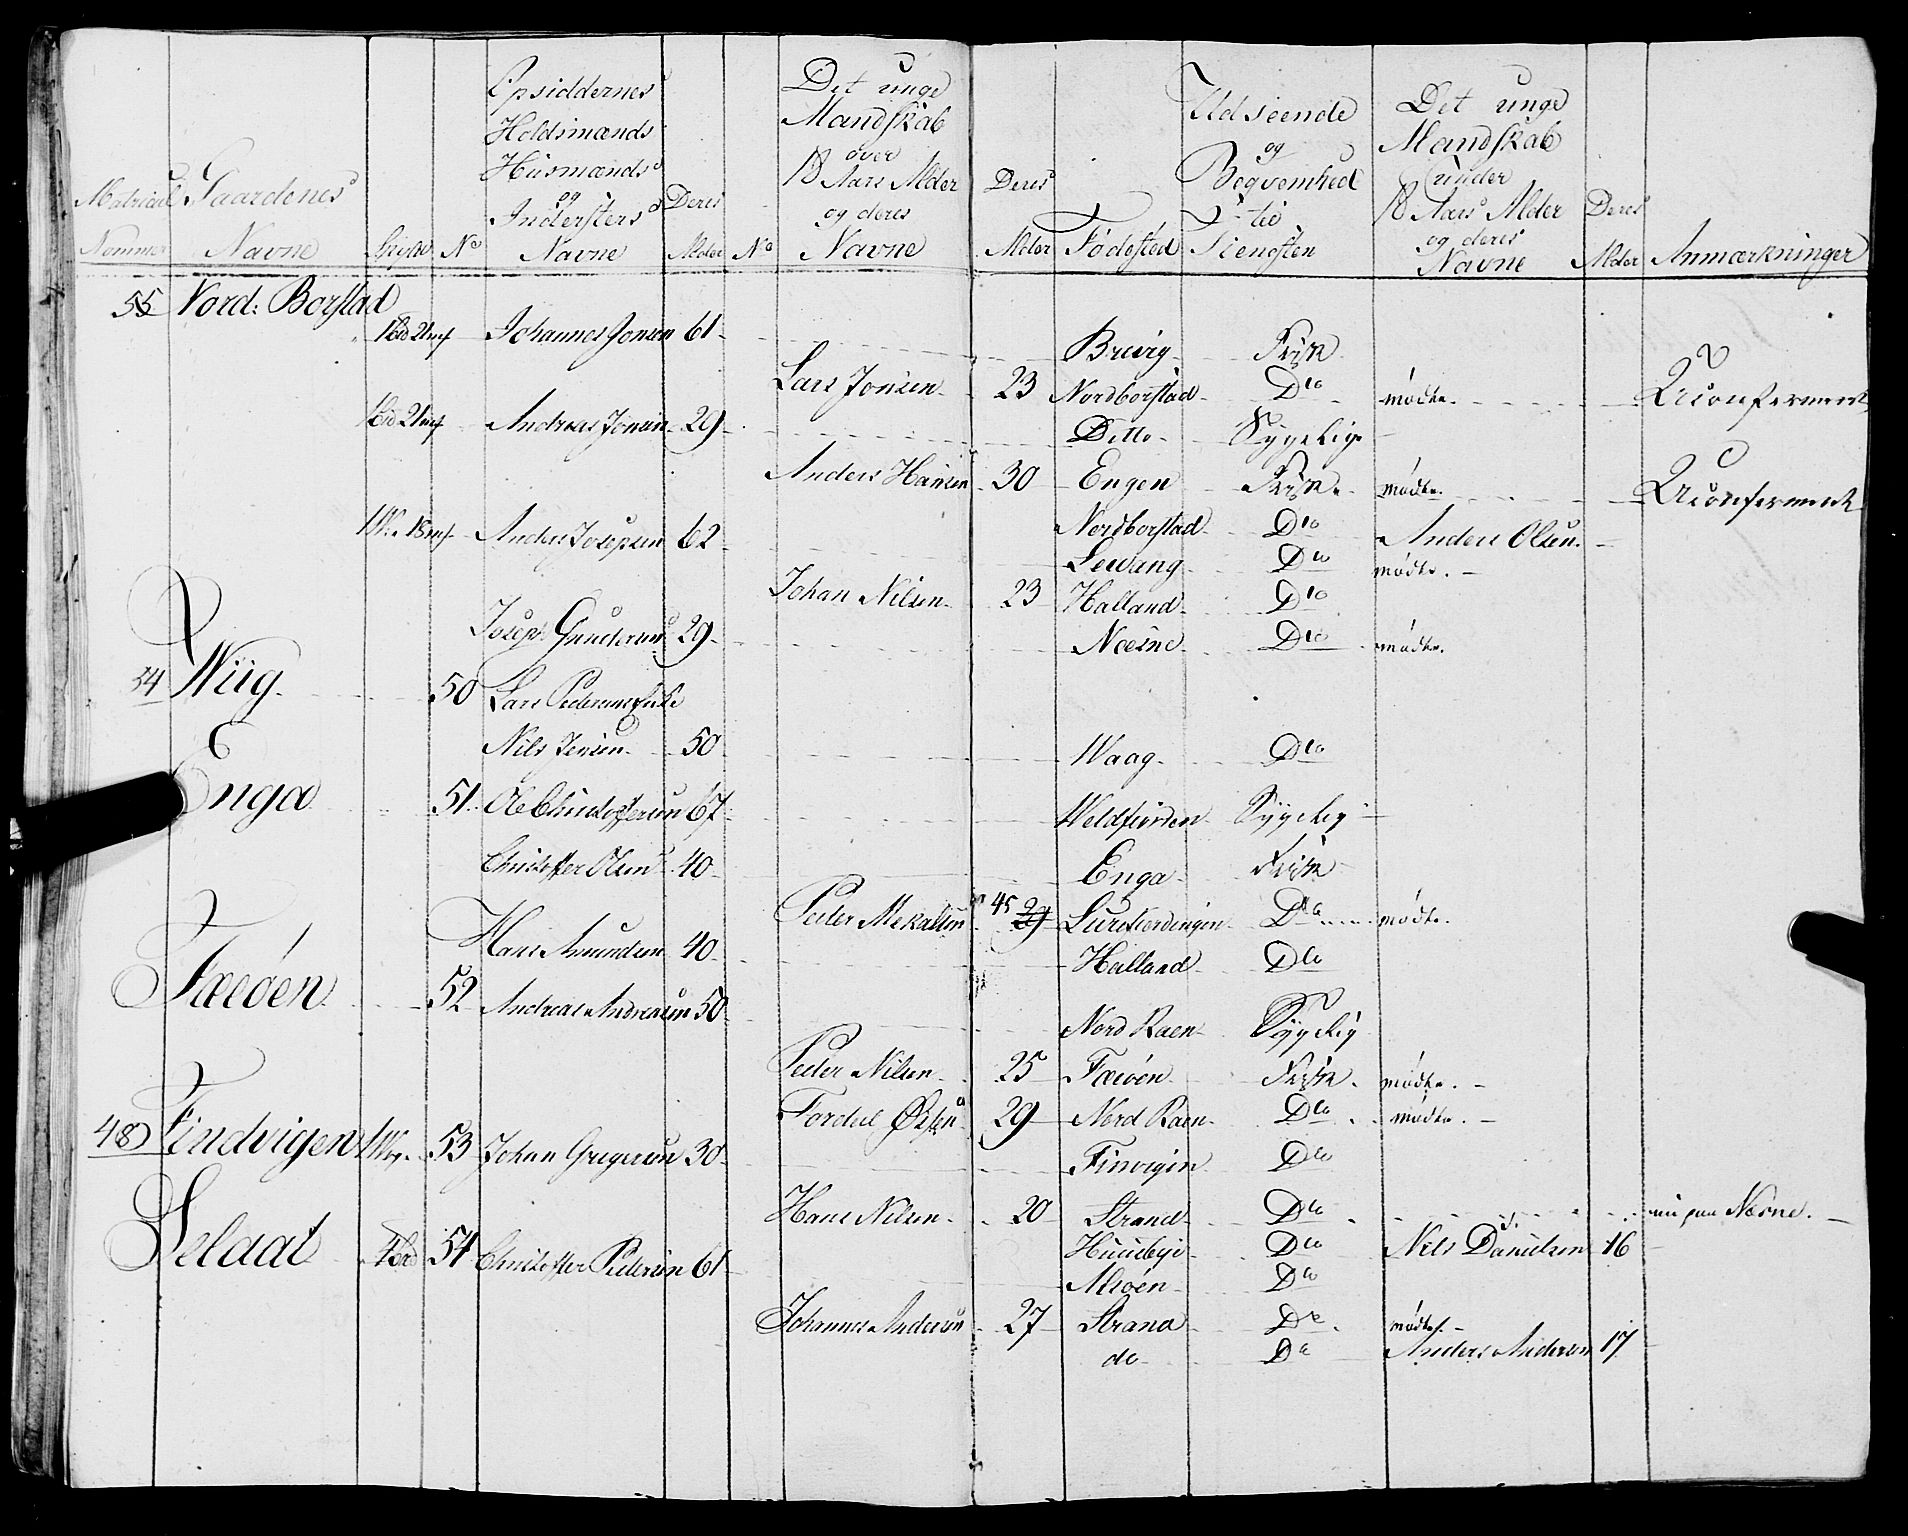 Matricul Nommer
Gaardenes Navne
Skyld
No
Opsiddernes Holdsmænds Huusmænds og Indersters Navne
Deres Alder
No
Det unge Mandskab over 18 Aars Alder og deres Navne
Deres Alder
Fødested
Udseende og Beqvemhed til Tienesten
Det unge Mandskab under 18 Aars Alder og deres Navne
Deres Alder
Anmærkninger
55 Nord: Borstad
Johannes Jonsen 61 Brevig Frisk
Lars Jonsen 23 Nordborstad Dto mødte. Uconfermert
Andreas Jonsen 29 Ditto Sygelig
Anders Hansen 30 Engen Frisk mødte. Uconfermert
Anders Josepsen 62 Nordborstad Dto Anders Olsen
Lewang Dto mødte.
Johan Nilsen 23 Halland Dto
Joseph Gundersen 29 Næsne Dto mødte.
54 Wiig 50 Lars Pedersens Enke
Nils Jensen 50 Waag Dto
Enga 51 Ole Christoffersen 67 Weldfiorden Sygelig
Christoffer Olsen 40 Enga Frisk
Peder Mekalsen 45 29 Lurefiordingen Dto mødte.
Hans Amundsen 40 Halland Dto
Færøen 52 Andreas Andreasen 50 Nord Raen Sygelig
Peder Nilsen 25 Færøen Frisk mødte.
Tordal Ørsen 29 Nord Raen Dto mødte.
48 Findvigen 1 Wog 53 Johan Gregersen 30 Finvigen Dto
Hans Nilsen 20 Strand Dto Næsne.
Selaat 54 Christoffer Pedersen 61 Huusbye Dto Nils Danielsen 16
Alsøen Dto
Johannes Andersen 27 Strand Dto mødte.
do Dto Anders Andersen 17